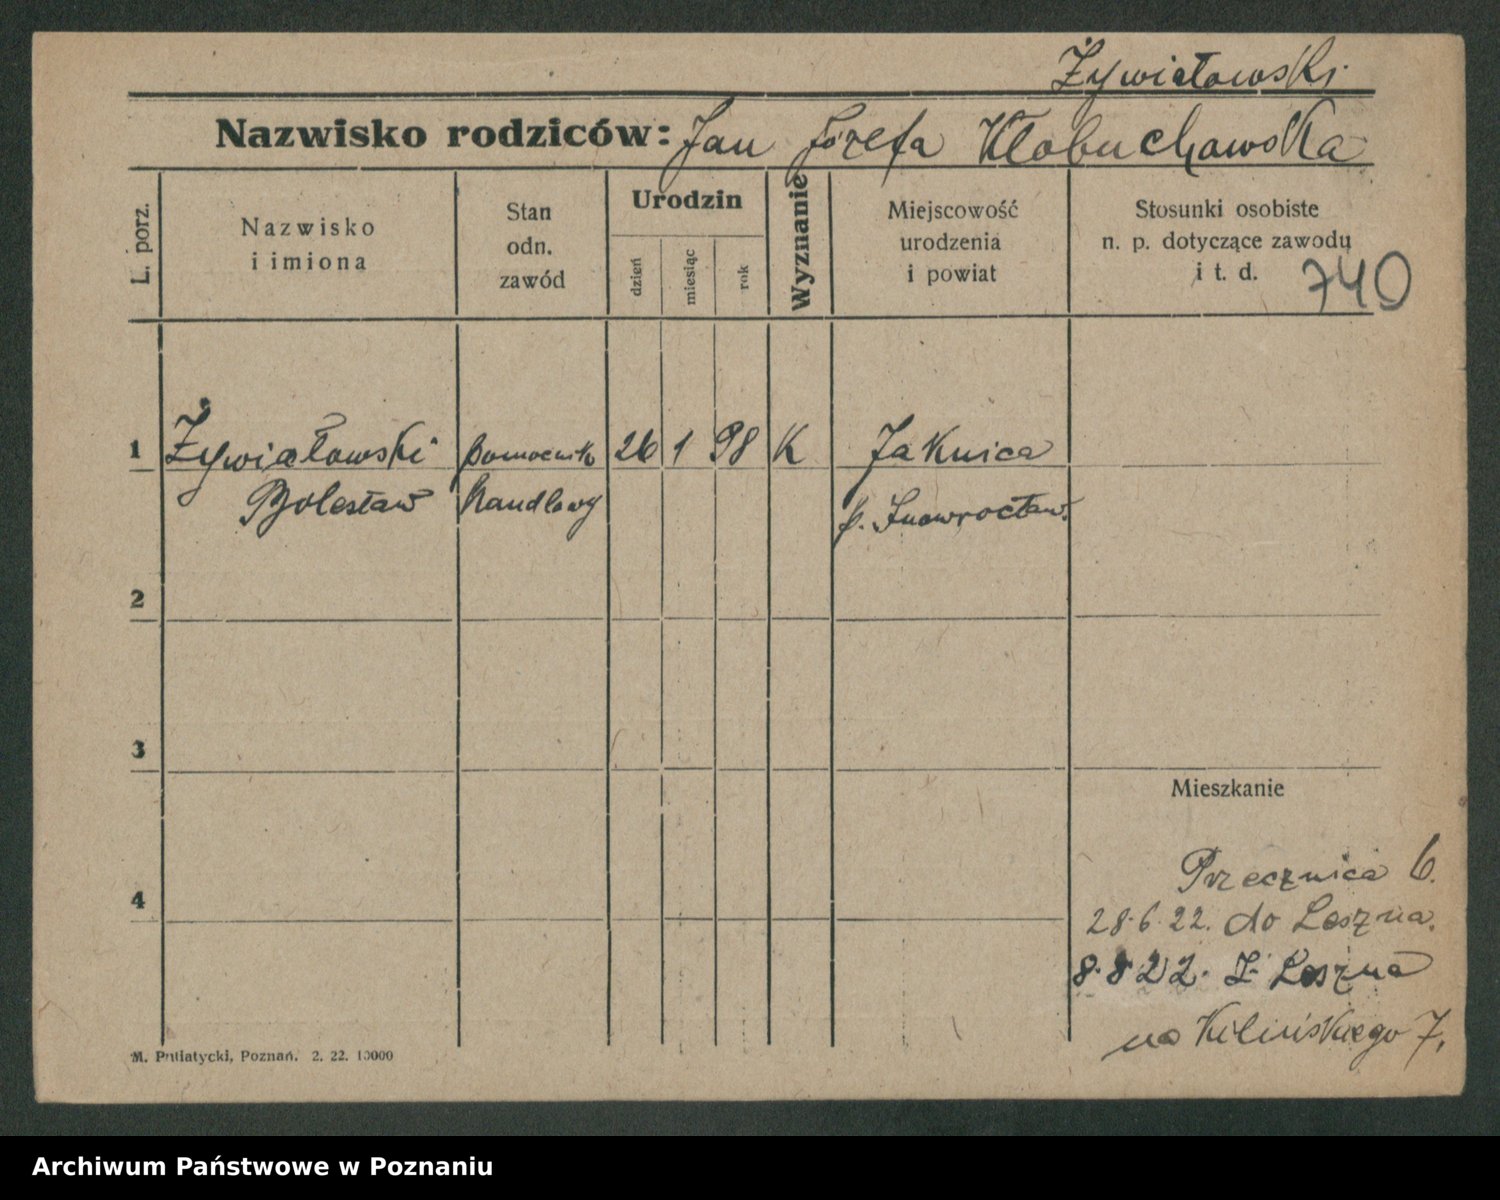 Żywiałowski
Nazwisko rodziców: Jan Józefa Kłobuchowska
L. porz.
Nazwisko
i imiona
Stan
odn.
zawód
Urodzin
dzień
miesiąc
rok
Wyznanie
Miejscowość
urodzenia
i powiat
Stosunki osobiste
n. p. dotyczące zawodu
i t. d.
740
1 Żywiałowski pomocnik 26 1 98 K Jaknica
Bolesław handlowy p. Inowrocław.
2
3
Mieszkanie
4
Przecznica 6.
28.6.22. do Leszna.
8.8.22. Z Leszna
na Kilińskiego 7.
M. Putiatycki, Poznań. 2. 22. 10000
Archiwum Państwowe w Poznaniu